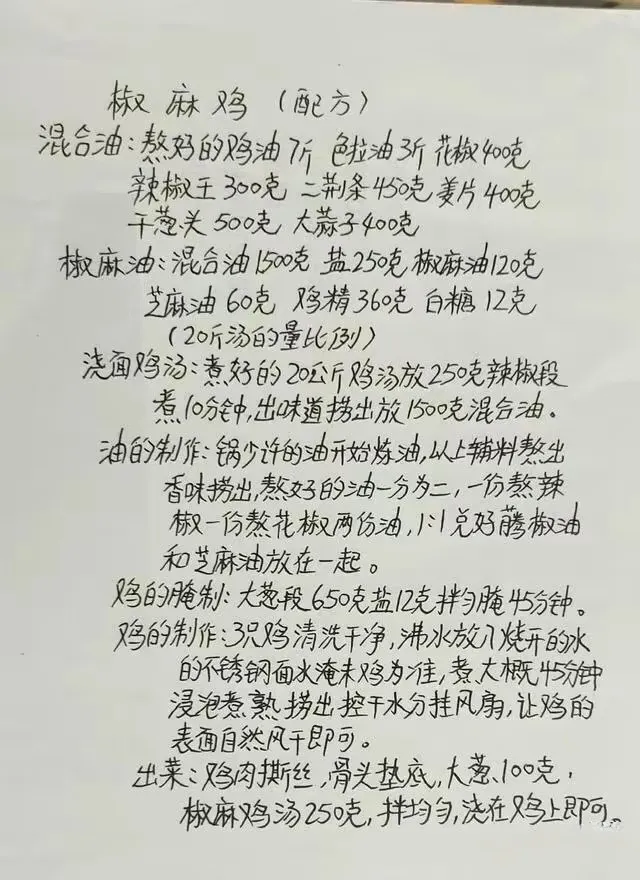 椒麻鸡（配方）
混合油：熬好的鸡油7斤 色拉油3斤 花椒400克
辣椒王300克 二荆条450克 姜片400克
干葱头500克 大蒜子400克
椒麻油：混合油1500克 盐250克 椒麻油120克
芝麻油60克 鸡精360克 白糖12克
（20斤汤的量比例）
浇面鸡汤：煮好的20公斤鸡汤放250克辣椒段
煮10分钟，出味道捞出放1500克混合油。
油的制作：锅少许的油开始炼油，以上辅料熬出
香味捞出，熬好的油一分为二，一份熬辣
椒一份熬花椒两份油，1:1兑好藤椒油
和芝麻油放在一起。
鸡的腌制：大葱段650克盐12克拌匀腌45分钟。
鸡的制作：3只鸡清洗干净，沸水放入烧开的水
的不锈钢面水淹末鸡为准，煮大概45分钟
浸泡煮熟捞出控干水分挂风扇，让鸡的
表面自然风干即可。
出菜：鸡肉撕丝，骨头垫底，大葱100克，
椒麻鸡汤250克，拌均匀，浇在鸡上即可。